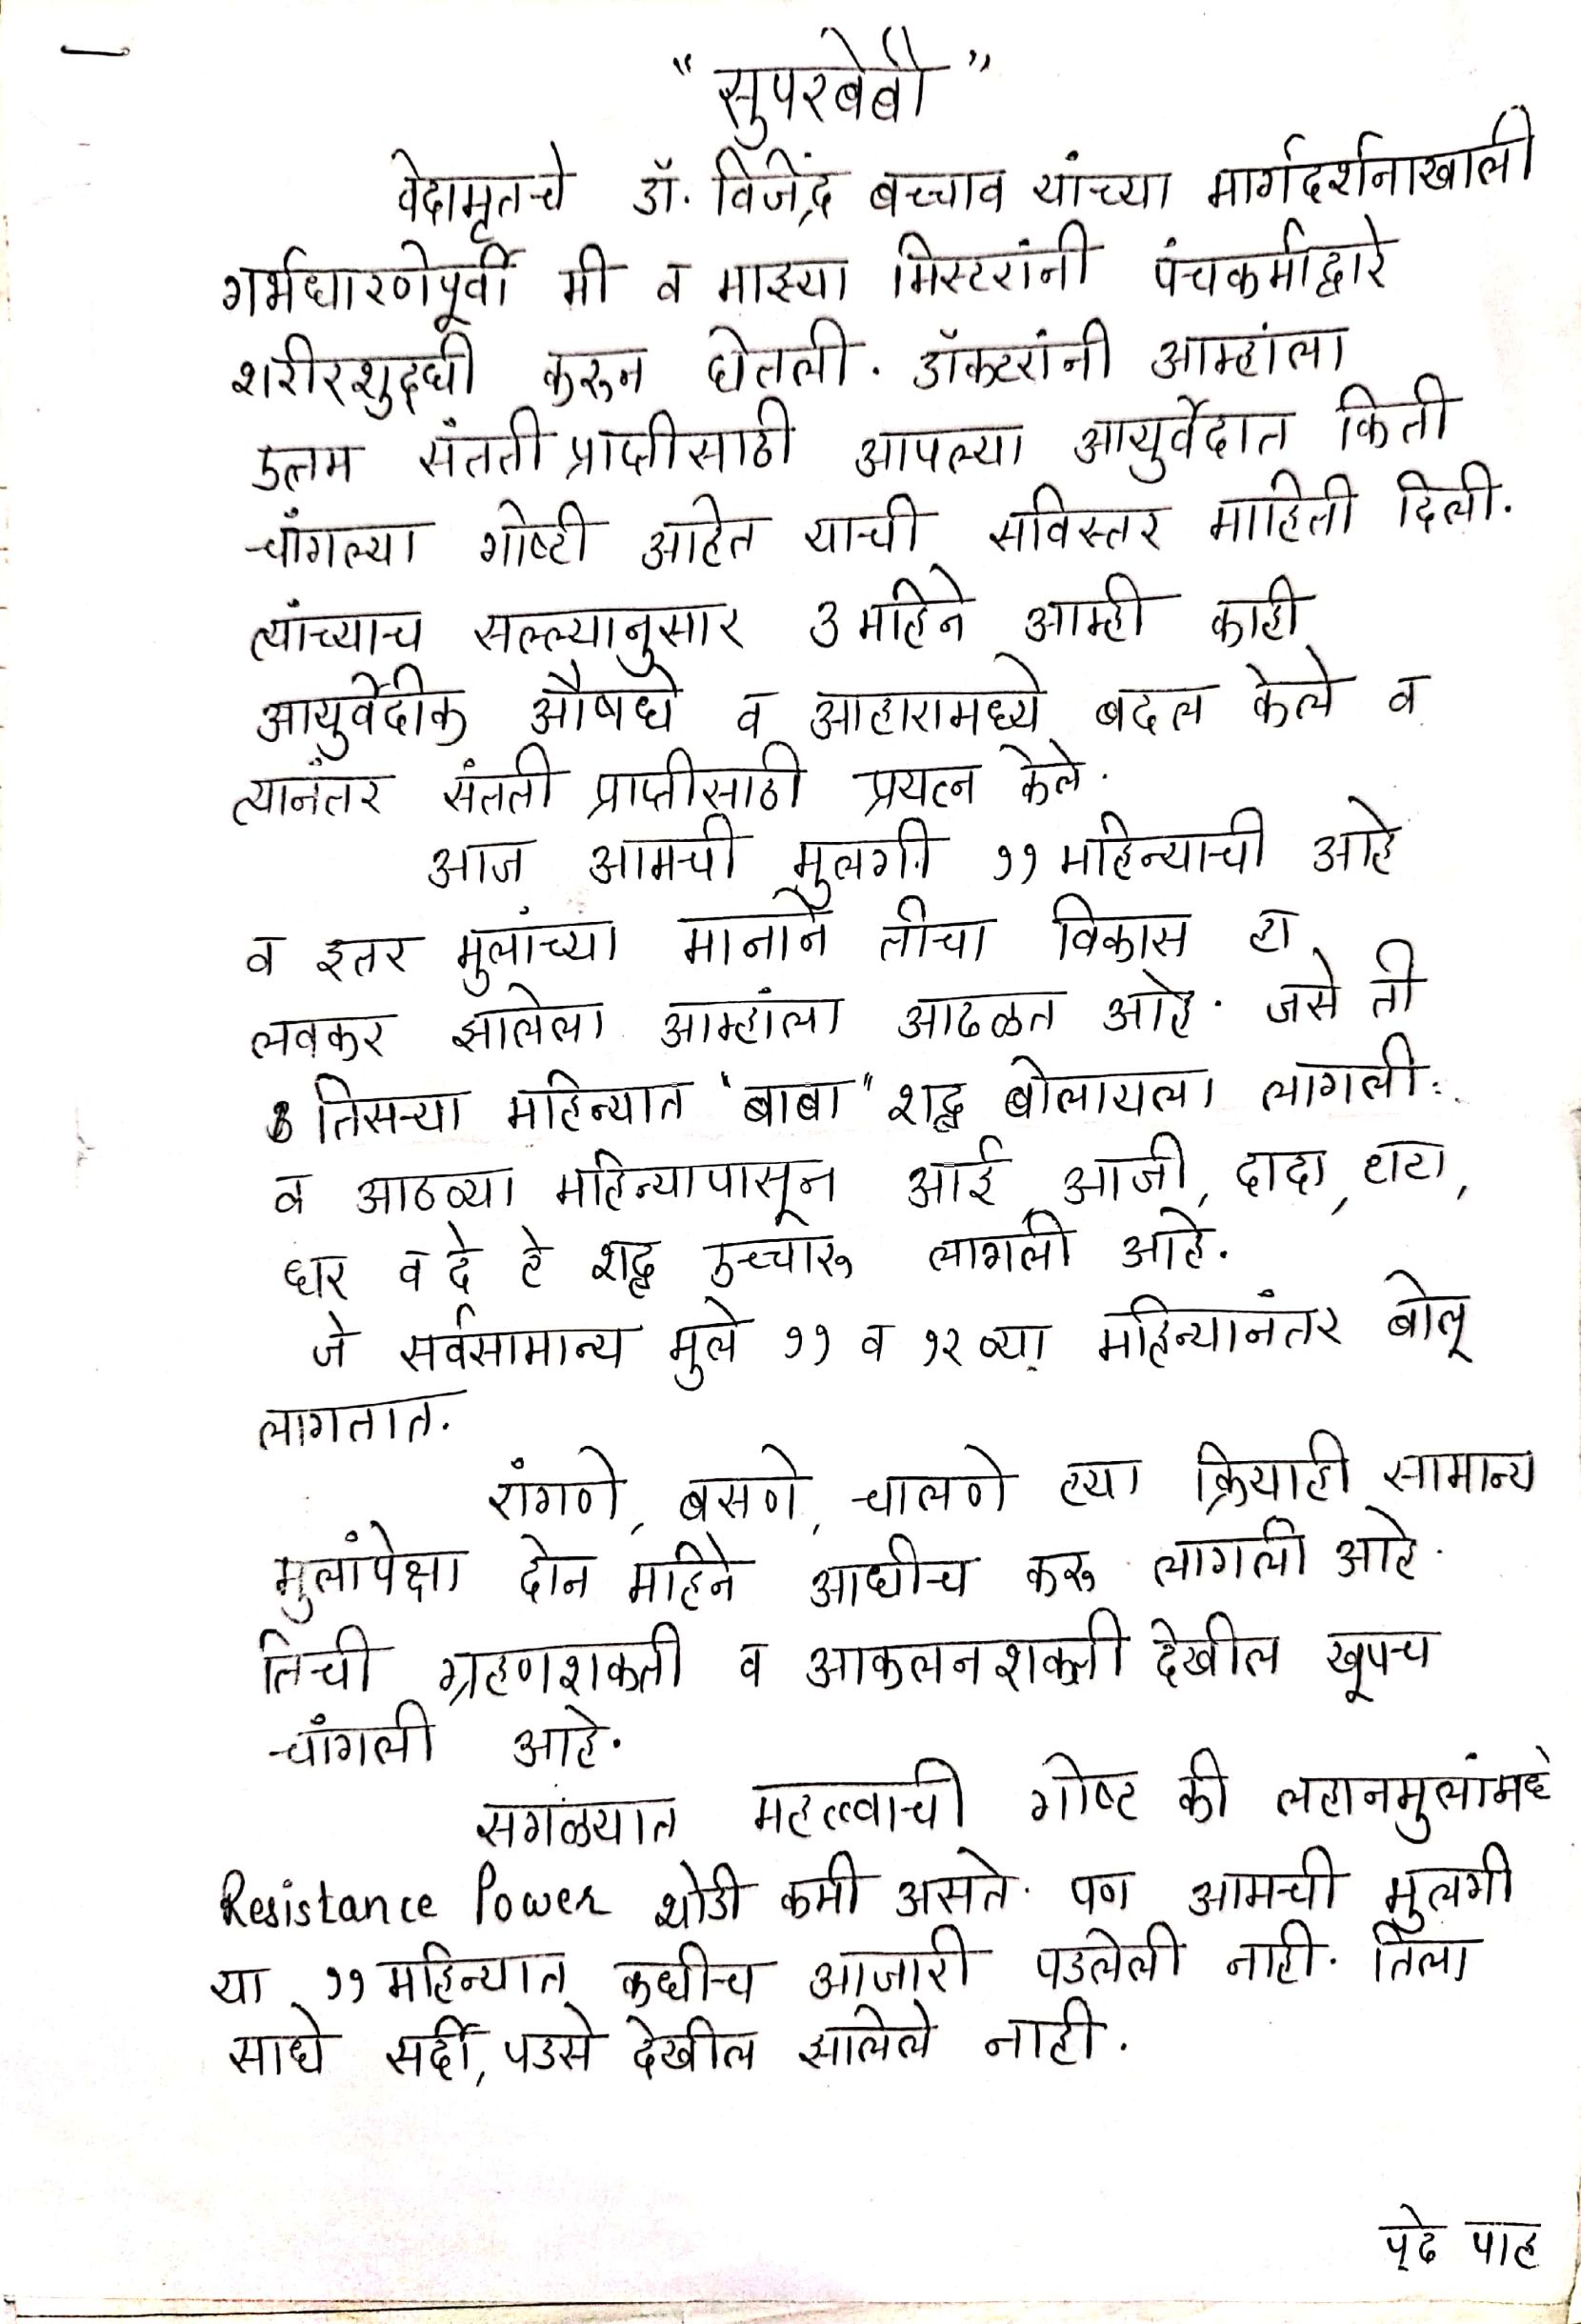 "सुपरबेबी"
वेदामृतचे डॉ. विजेंद्र बच्चाव यांच्या मार्गदर्शनाखाली
गर्भधारणेपूर्वी मी व माझ्या मिस्टरांनी पंचकर्माद्वारे
शरीरशुद्धी करून घेतली. डॉक्टरांनी आम्हांला
उत्तम संतती प्राप्तीसाठी आपल्या आयुर्वेदात किती
चांगल्या गोष्टी आहेत याची सविस्तर माहिती दिली.
त्यांच्याच सल्ल्यानुसार 3 महिने आम्ही काही
आयुर्वेदीक औषधे व आहारामध्ये बदल केले व
त्यानंतर संतती प्राप्तीसाठी प्रयत्न केले.
आज आमची मुलगी ११ महिन्याची आहे
व इतर मुलांच्या मानाने तीचा विकास हा
लवकर झालेला आम्हांला आढळत आहे. जसे ती
तिसऱ्या महिन्यात "बाबा" शद्ब बोलायला लागली.
व आठव्या महिन्यापासून आई, आजी, दादा, टाटा,
घर व दे हे शद्ब उच्चारू लागली आहे.
जे सर्वसामान्य मुले ११ व १२ व्या महिन्यानंतर बोलू
लागतात.
रांगणे, बसणे, चालणे ह्या क्रियाही सामान्य
मुलांपेक्षा दोन महिने आधीच करू लागली आहे.
तिची ग्रहणशक्ती व आकलनशक्ती देखील खूपच
चांगली आहे.
सगळ्यात महत्त्वाची गोष्ट की लहानमुलांमधे
Resistance Power थोडी कमी असते. पण आमची मुलगी
या ११ महिन्यात कधीच आजारी पडलेली नाही. तिला
साधे सर्दी, पडसे देखील झालेले नाही.
पुढे पाह